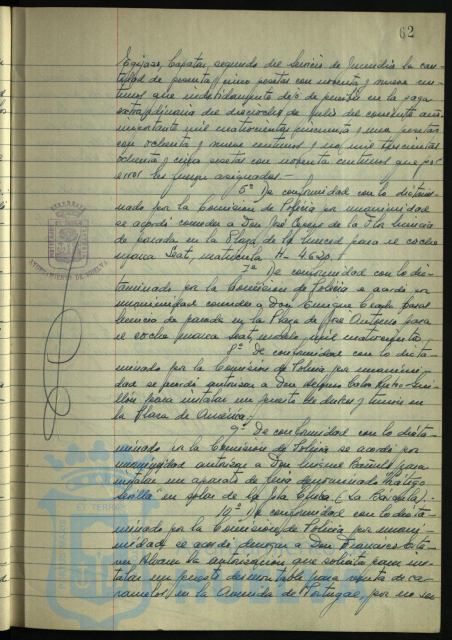 62
Capataz segundo del Servicio de Incendios la can-
tidad de sesenta y cinco pesetas con noventa y nueve cen-
timos que indebidamente dejó de percibir en la paga
extraordinaria del dieciocho de julio del corriente año
importante mil cuatrocientas cincuenta y una pesetas
con ochenta y nueve centimos y no mil trescientas
ochenta y cinco pesetas con noventa centimos que por
error le fueron asignadas.-
De conformidad con lo dictami-
nado por la Comision de Policia por unanimidad
se acordó conceder a Don José de la Flor licencia
de parada en la Plaza de la Merced para su coche
marca Seat, matricula H- 4620.
7º De conformidad con lo dic-
taminado por la Comision de Policia se acordó por
unanimidad conceder a Don Enrique para
licencia de parada en la Plaza de José Antonio para
su coche marca Seat, modelo mil cuatrocientos
8º De conformidad con lo dicta-
minado por la Comision de Policia por unanimi-
dad se acordó autorizar a Don
para instalar un puesto de dulces y turron en
la Plaza de America.
9º De conformidad con lo dicta-
minado por la Comision de Policia se acordó por
unanimidad autorizar a Don Miguel para
instalar un aparato de feria denominado "Latigo
Sevilla" en solar de la Isla Chica (La Bascula).-
10º De conformidad con lo dicta-
minado por la Comision de Policia por unani-
midad se acordó denegar a Don Francisco
la autorizacion que solicita para ins-
talar un puesto desmontable para venta de ca-
ramelos, en la Avenida de Portugal, por no ser
AYUNTAMIENTO DE HUELVA